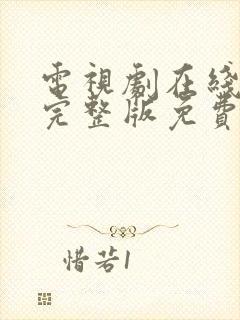 電視劇在綫
完整版免費
惜若1